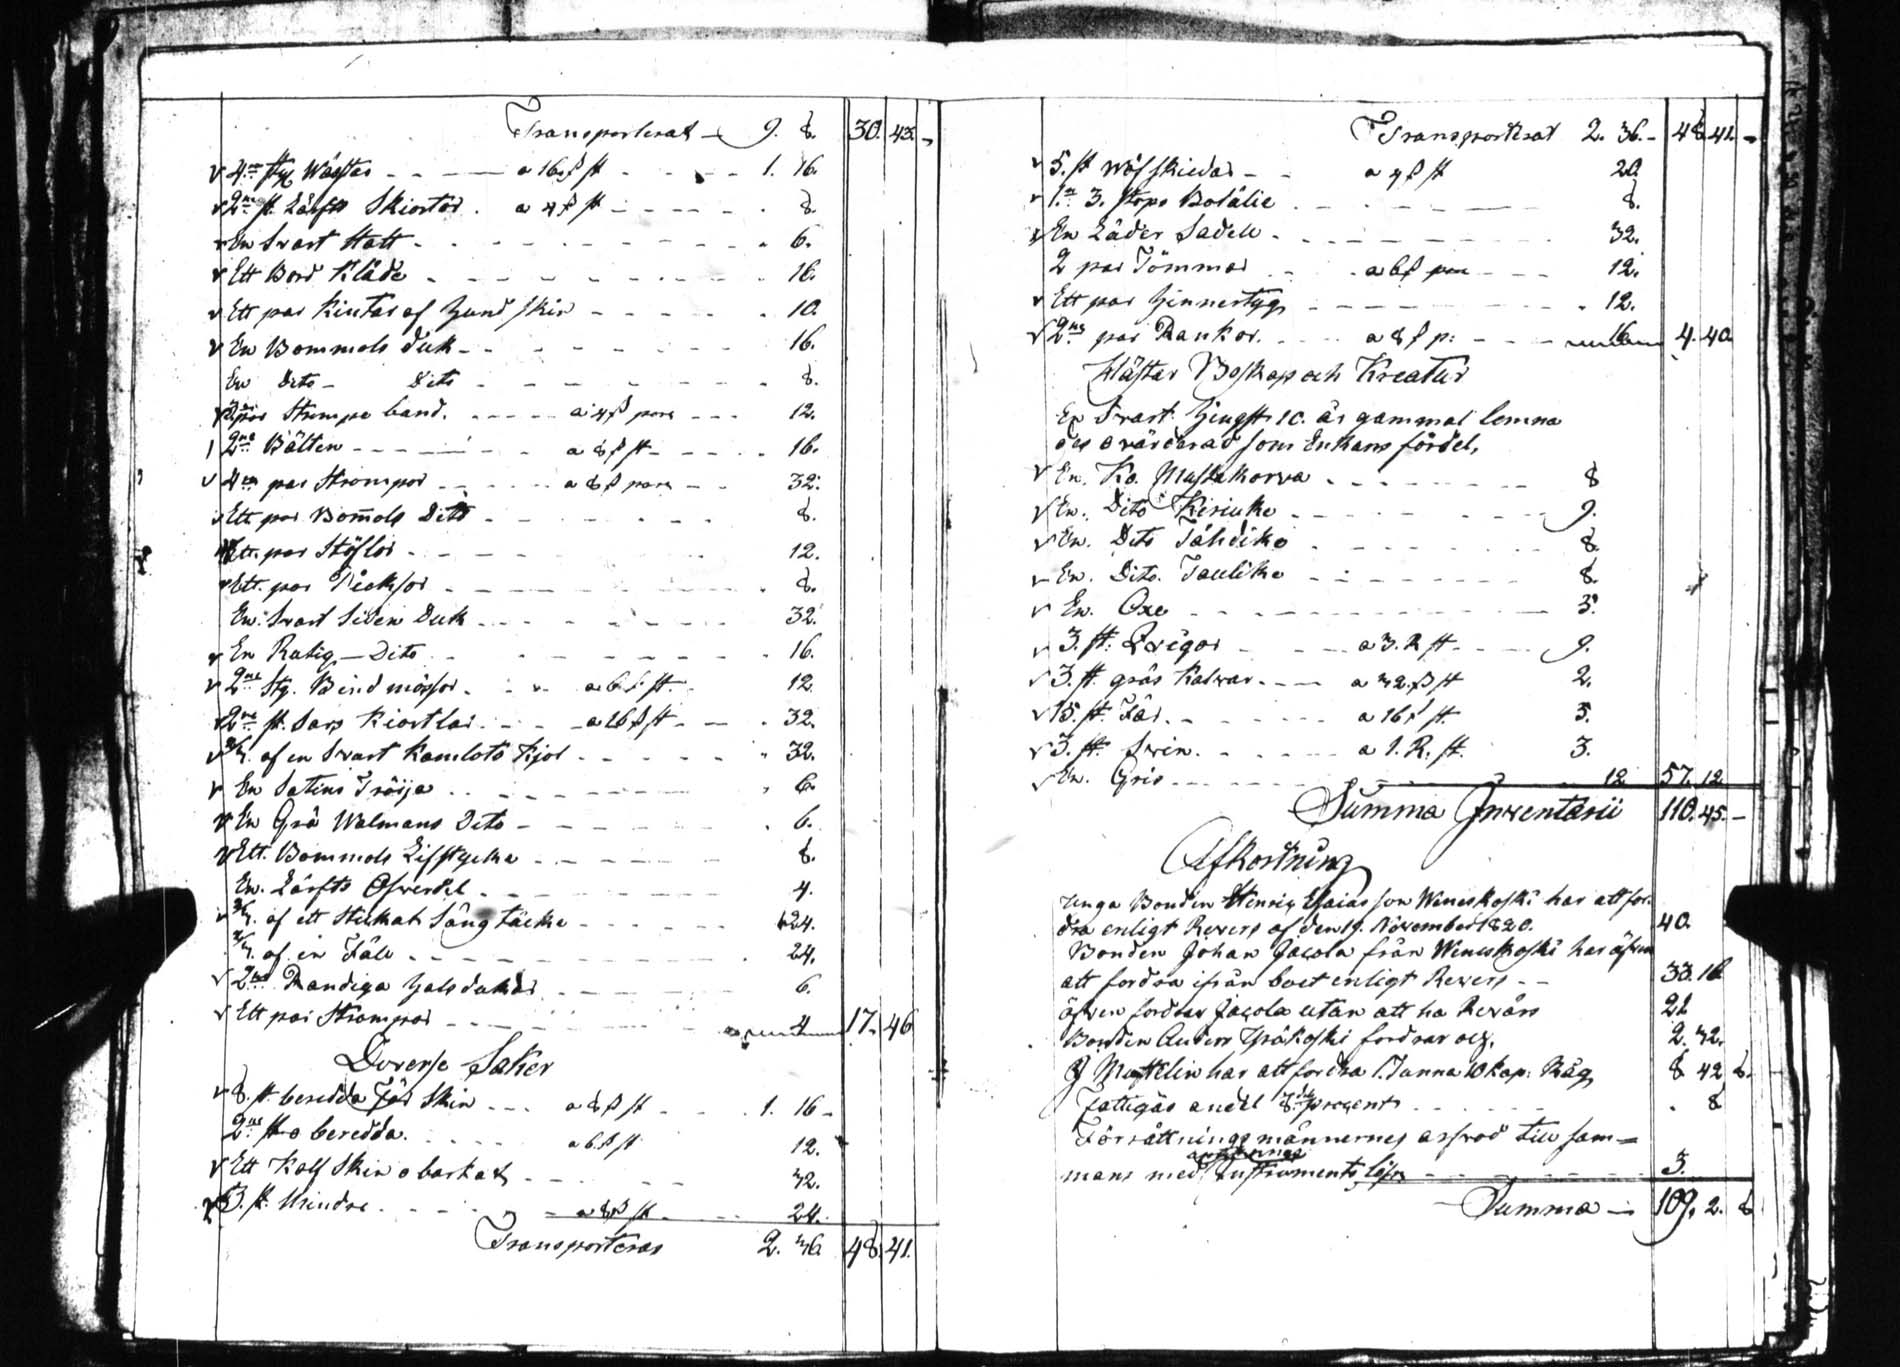 Transporterat 9. 8. 30. 43. -
4ne styx Wästar - - a 16 ß st - - 1. 16.
2ne st. Lärfts Skiortor . a 4 ß st - - - 8.
En Svart Hatt - - - 6.
Ett Bord Kläde - - - 16.
Ett par Kintar af Hund skin - - - 10.
En Bommols duk - - - 16.
En Dito - Dito - - - 8.
par Strumpe band. - - - a 4 ß para - - - 12.
2ne Bälten - - - a 8 ß st - - - 16.
4ra par Strompor - - - a 8 ß para - - 32.
Ett par Bom̄ols Dito - - - 8.
Ett. par Stöflor - - - 12.
Ett. par Pieksor - - - 8.
En Svart Siden Duk - - - 32.
En Rutig - Dito - - - 16.
2ne Sty. Bindmössor - - - a 6 ß st. 12.
2ne st. Sars Kiortlar - - - a 16 ß st - - 32.
af en Svart Kamlots Kjol - - - 32.
En Satins Tröija - - - 6.
En Grå Walmans Dito - - - 6.
Ett. Bommols Lifstycke - - - 8.
En. Lärfts Öfverdel - - - 4.
af ett Stickat Sängtäcke - - - 24.
af en Fäll - - - 24.
2ne Randiga Halsdukar - - - 6.
Ett par Strompor - - - 4 17. 46
Diverse Saker
8. st. beredda Får Skin - - - a 8 ß st - - 1. 16 -
2ne st o beredda. - - - a 6 ß st 12.
Ett Kalf Skin o barkat - - - 32.
3. st. Mindre - - - a 8 ß st - - - 24.
Transporteras 2. 36. 48. 41.
Transporterat 2. 36. - 48. 41. -
5. st Wäfskiedar - - a 4 ß st 20.
1. 3. stops Botälie - - - 8.
En Läder Sadell - - - 32.
2 par Tömmar - - a 6 ß par - - - 12.
Ett par Hinnertyg - - - 12.
2ne par Rankor. - - - a 8 ß p: - - - 16 4. 40.
Hästar Boskap och Kreatur
En Svart Hingst 10. år gammal lemna
des ovärderad som Enkans fördel.
En. Ko. Mustakorva - - - 8
En. Dito Kiriuke - - - 9.
En. Dito Tähdike - - - 8.
En. Dito. Taulike - - - 8.
En. Oxe - - - 5.
3. st. Qvigor - - - a 3. R st - - - 9.
3. st. gräs Kalvar - - - a 32 ß st 2.
15. st. Får - - - a 16 ß st. 5.
3. st. Svin. - - - a 1. R. st. 3.
En. Gris - - - 12 57. 12
Summa Inventarii 110. 45. -
Afkortning
Unga Bonden Henric Esaiasson har att for-
dra enligt Revers af den 19. November 1820. 40.
Bonden Johan Jacola från har äfven
att fordra ifrån boet enligt Revers - - 33. 16
äfven fordrar Jacola utan att ha Revärs 21
Bonden Anders fordrar 2. 32.
har att fordra 1. Tunna 10 kap: Råg 8 42 8.
Fattigas andel procent - - - 8
Förrättningsmännernes arfvod till sam-
mans med Instruments lösn - - - 3.
Summa - 109. 2. 8